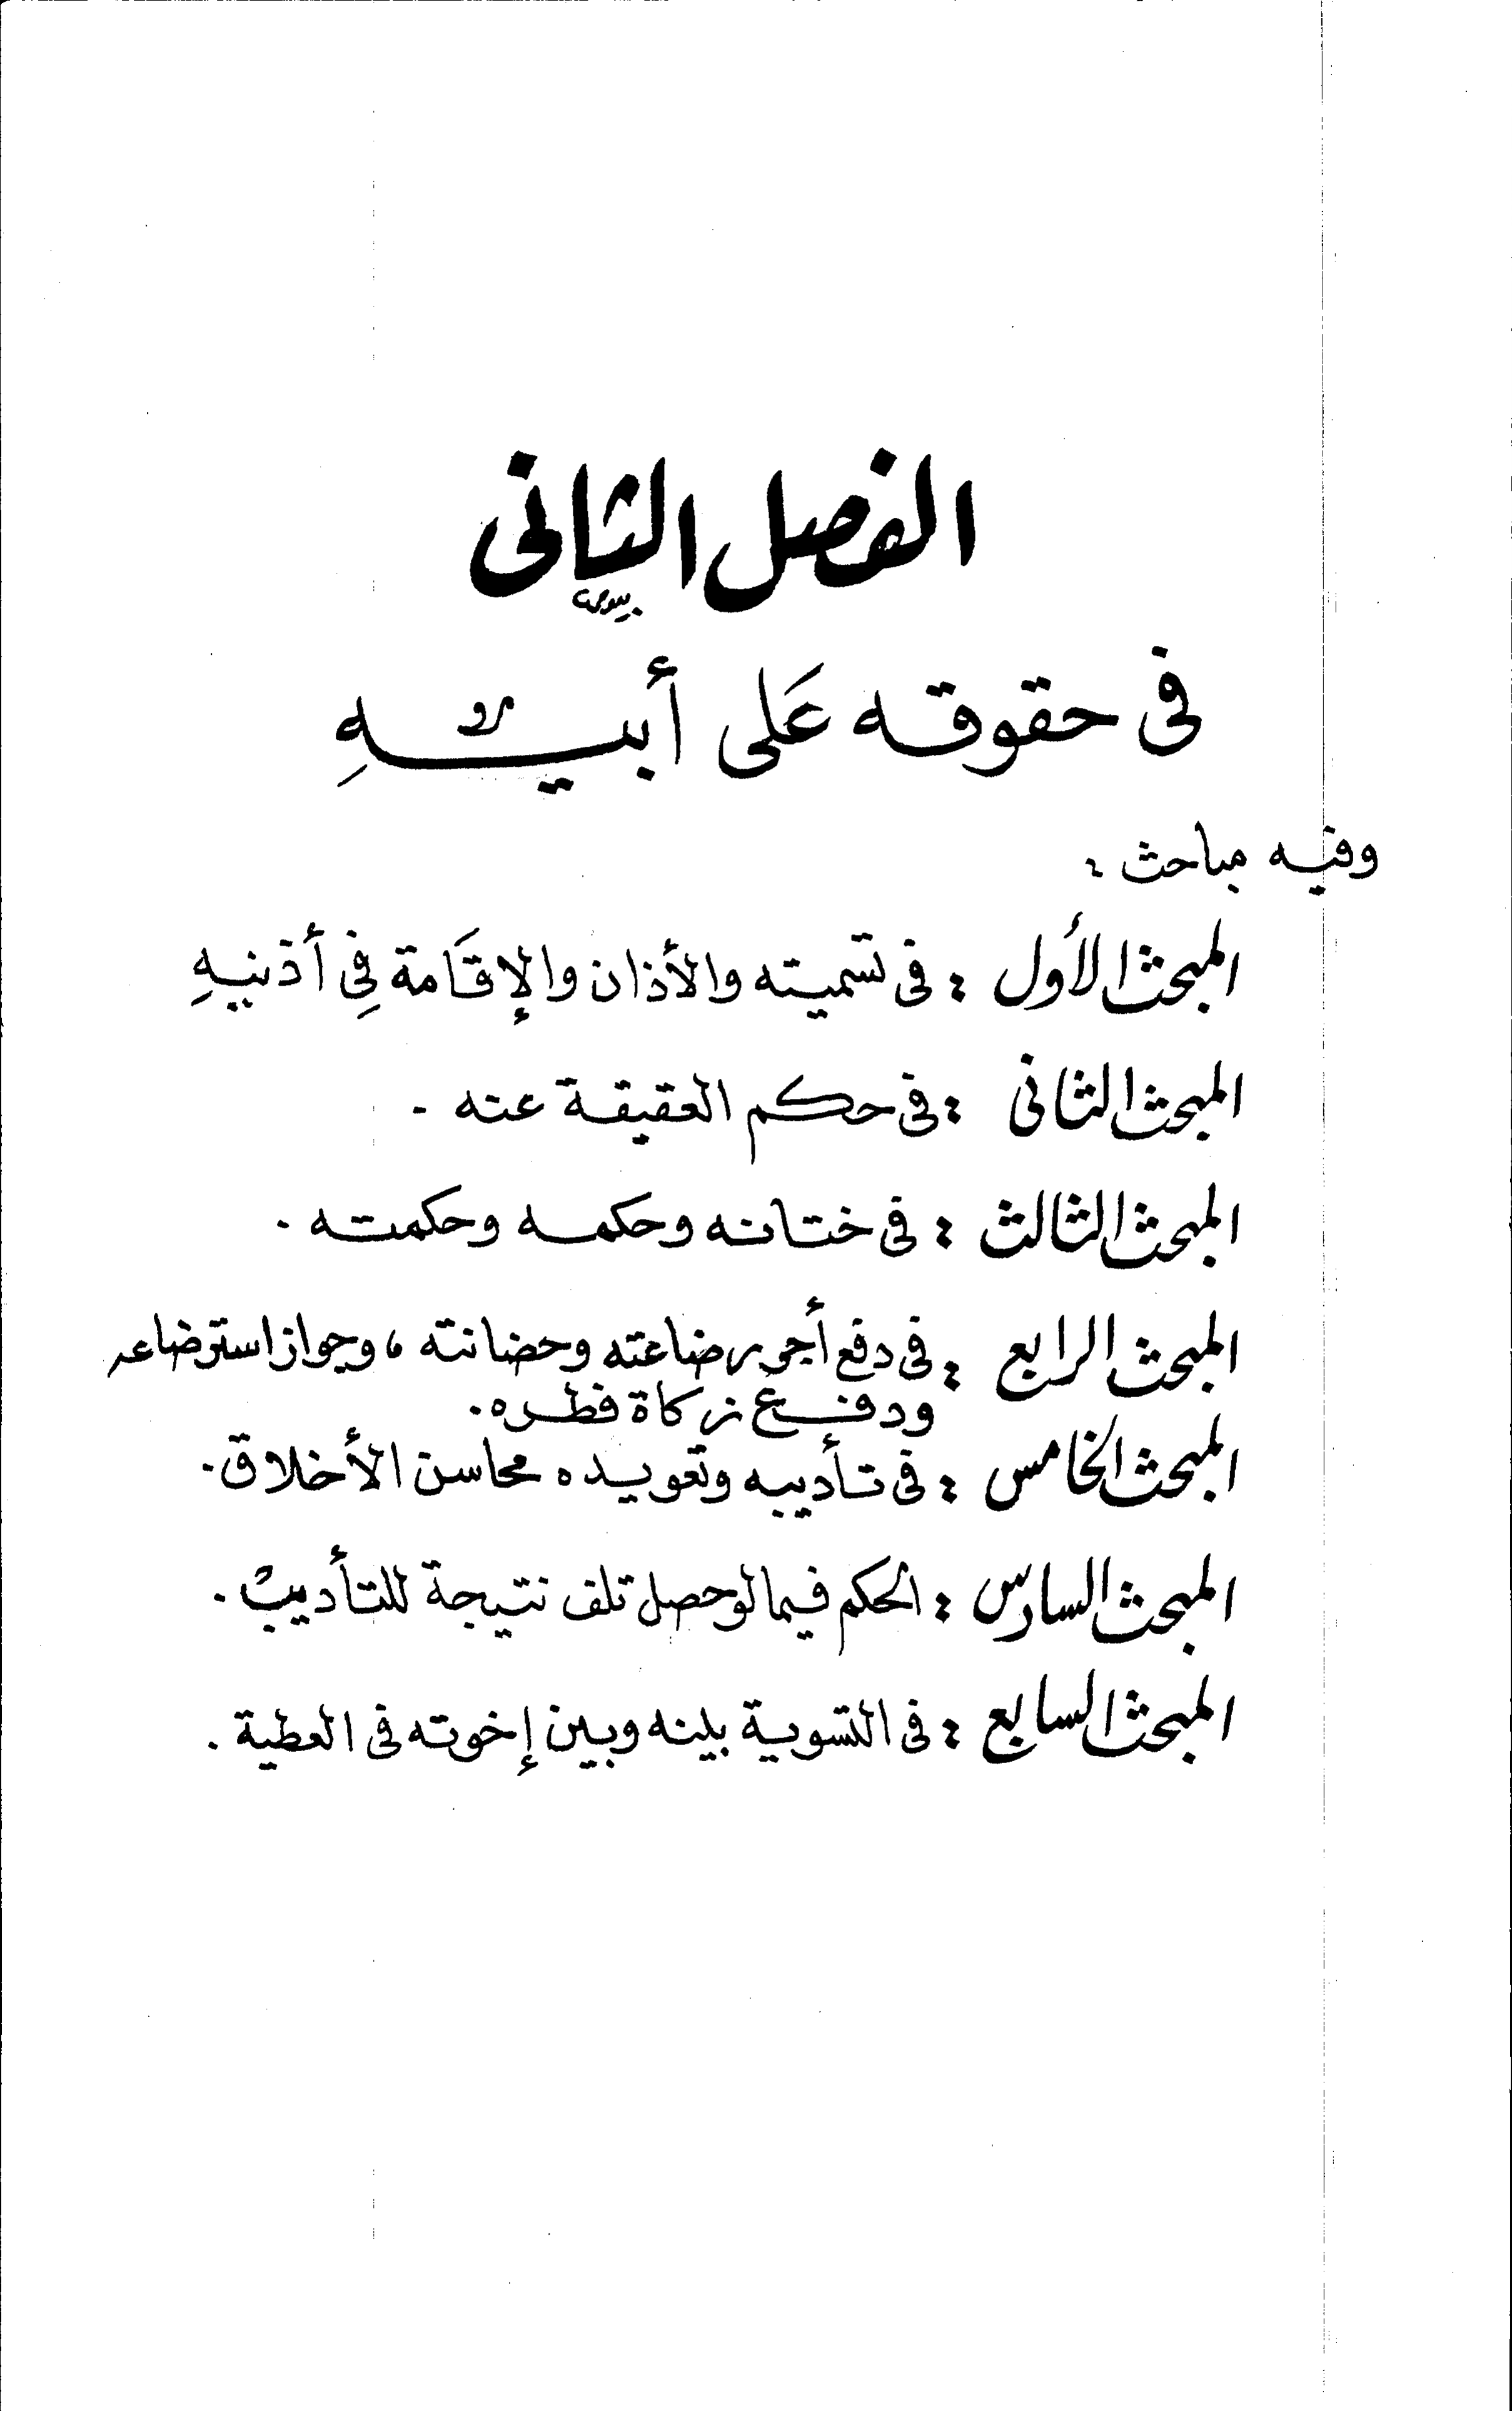 الفصل الثانى
فى حقوقه عَلى أبيـــهِ
وفيه مباحث :
المبحث الأول : فى تسميته والأذان والإقَامة فِى أذنيهِ
المبحث الثانى : فى حكم العقيقة عنه .
المبحث الثالث : فى ختانه وحكمه وحكمته .
المبحث الرابع : فى دفع أجور رضاعته وحضانته ، وجواز استرضاعه
ودفع زكاة فطره .
المبحث الخامس : فى تأديبه وتعويده محاسن الأخلاق .
المبحث السادس : الحكم فيما لو حصل تلف نتيجة للتأديب .
المبحث السابع : فى التسوية بينه وبين إخوته فى العطية .